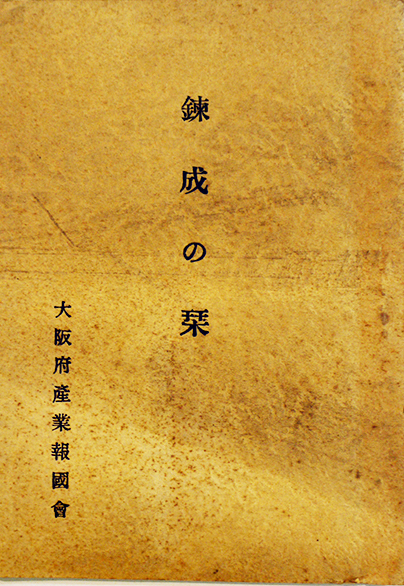 鍊成の栞
大阪府產業報國會